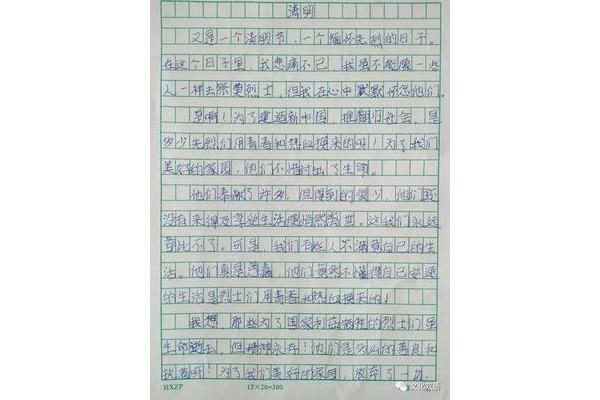 清明
又是一个清明节，一个缅怀先烈的日子。
在这个日子里，我悲痛不已，我虽不能像一些
人一样去祭奠烈士，但我在心中默默怀念他们。
是啊！为了建造新中国，推翻旧社会，是
多少先烈们用青春和热血换来的啊！为了我们
美好的家园，他们不惜付出了生命。
他们奉献了许多，但得到的很少，他们还
没有来得及享受生活便悄然离世。这我们永远
都比不了。可是，我们有些人不满意自己的生
活。他们真是愚蠢，他们竟然不懂得自己安逸
的生活是烈士们用青春和热血换来的！
我想，那些为了国家利益牺牲的烈士们虽
生命逝去，但精神永存！他们是多么的善良和
执着啊！为了我们美好的家园，放弃了一切，
HXZP 15×20=300